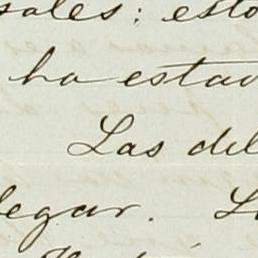 sales: esto
ha estad
Las del
legar. L